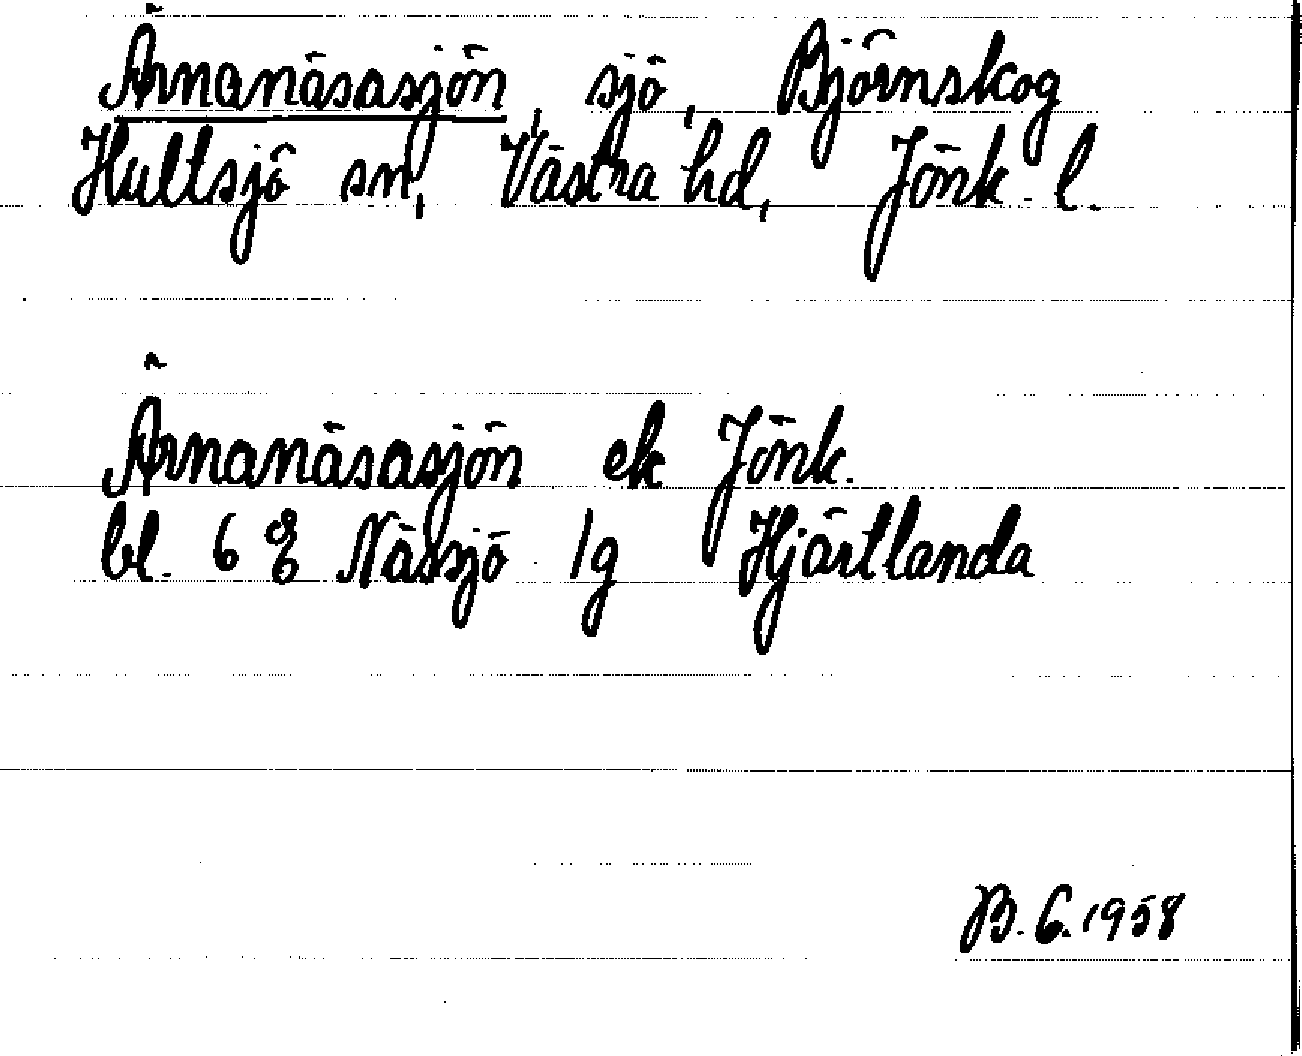 Ärnanäsasjön, sjö, Björnskog
Hultsjö sn, Västra hd, Jönk. l.
Ärnanäsasjön ek Jönk.
bl. 6 Nässjö 1g Hjärtlanda
B. G. 1958